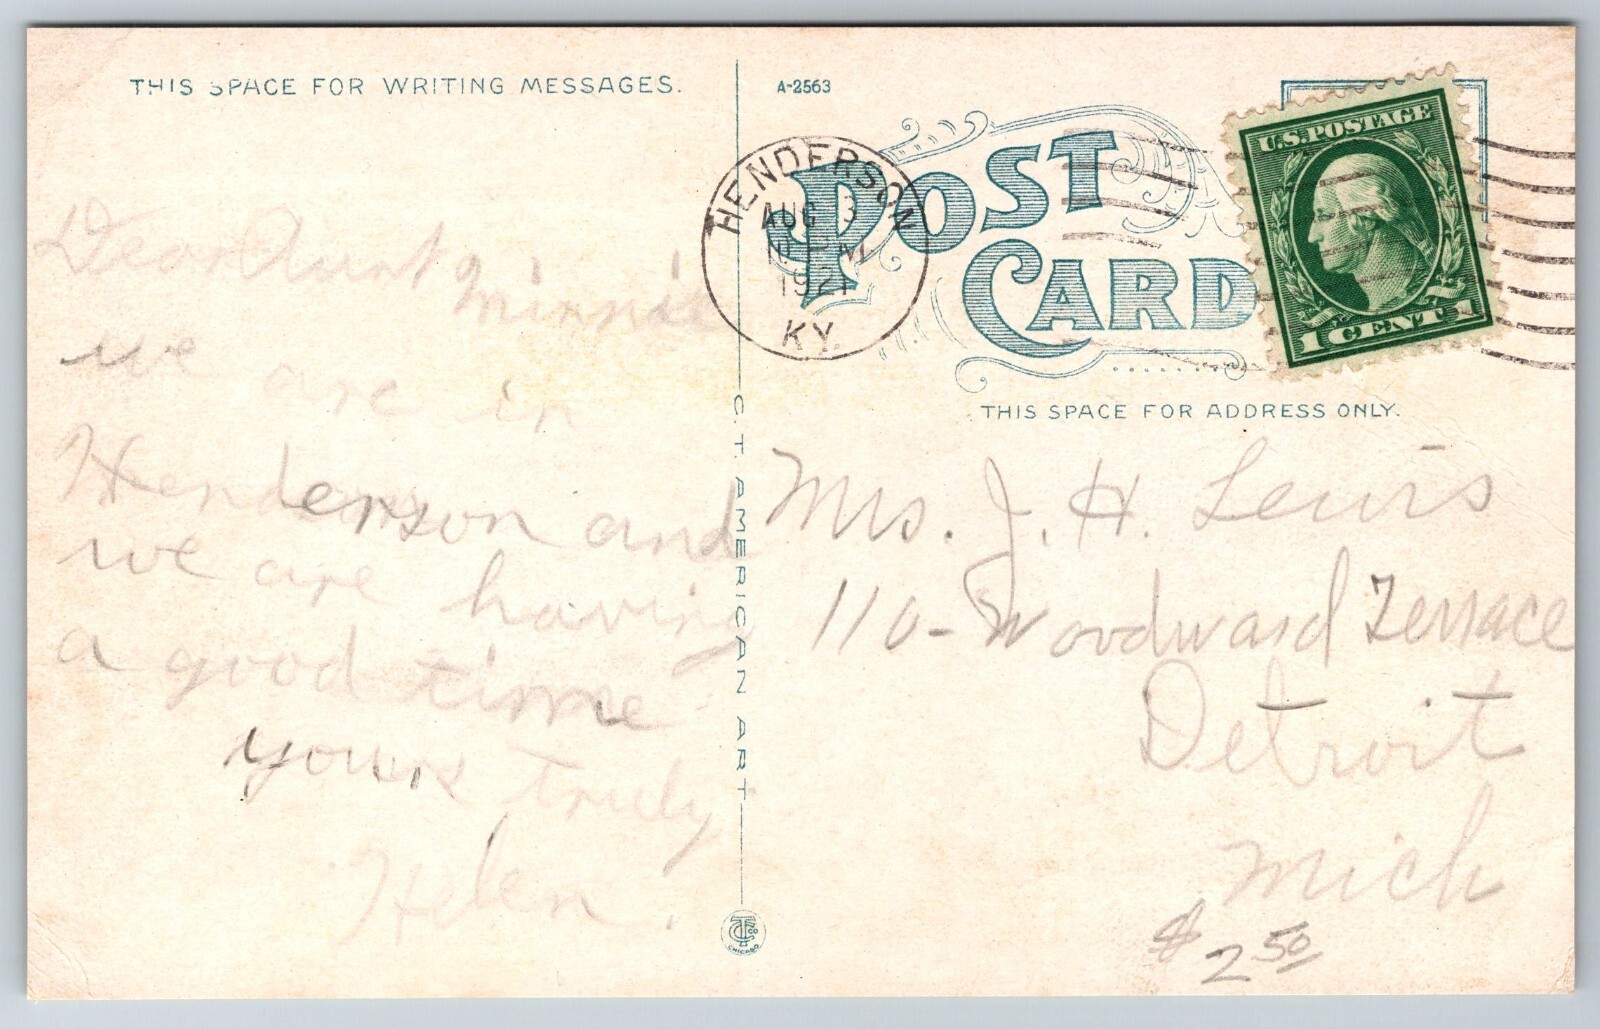 THIS SPACE FOR WRITING MESSAGES.
A-2563
POST
CARD
HENDERSON
AUG 3
PM
1921
KY.
U.S. POSTAGE
1 CENT 1
THIS SPACE FOR ADDRESS ONLY.
Dear Aunt Minnie
we are in
Henderson and
we are having
a good time
yours truly
Helen.
C. T. AMERICAN ART
CHICAGO
Mrs. J. H. Lewis
110- Woodward Terrace
Detroit
Mich
$ 2 50